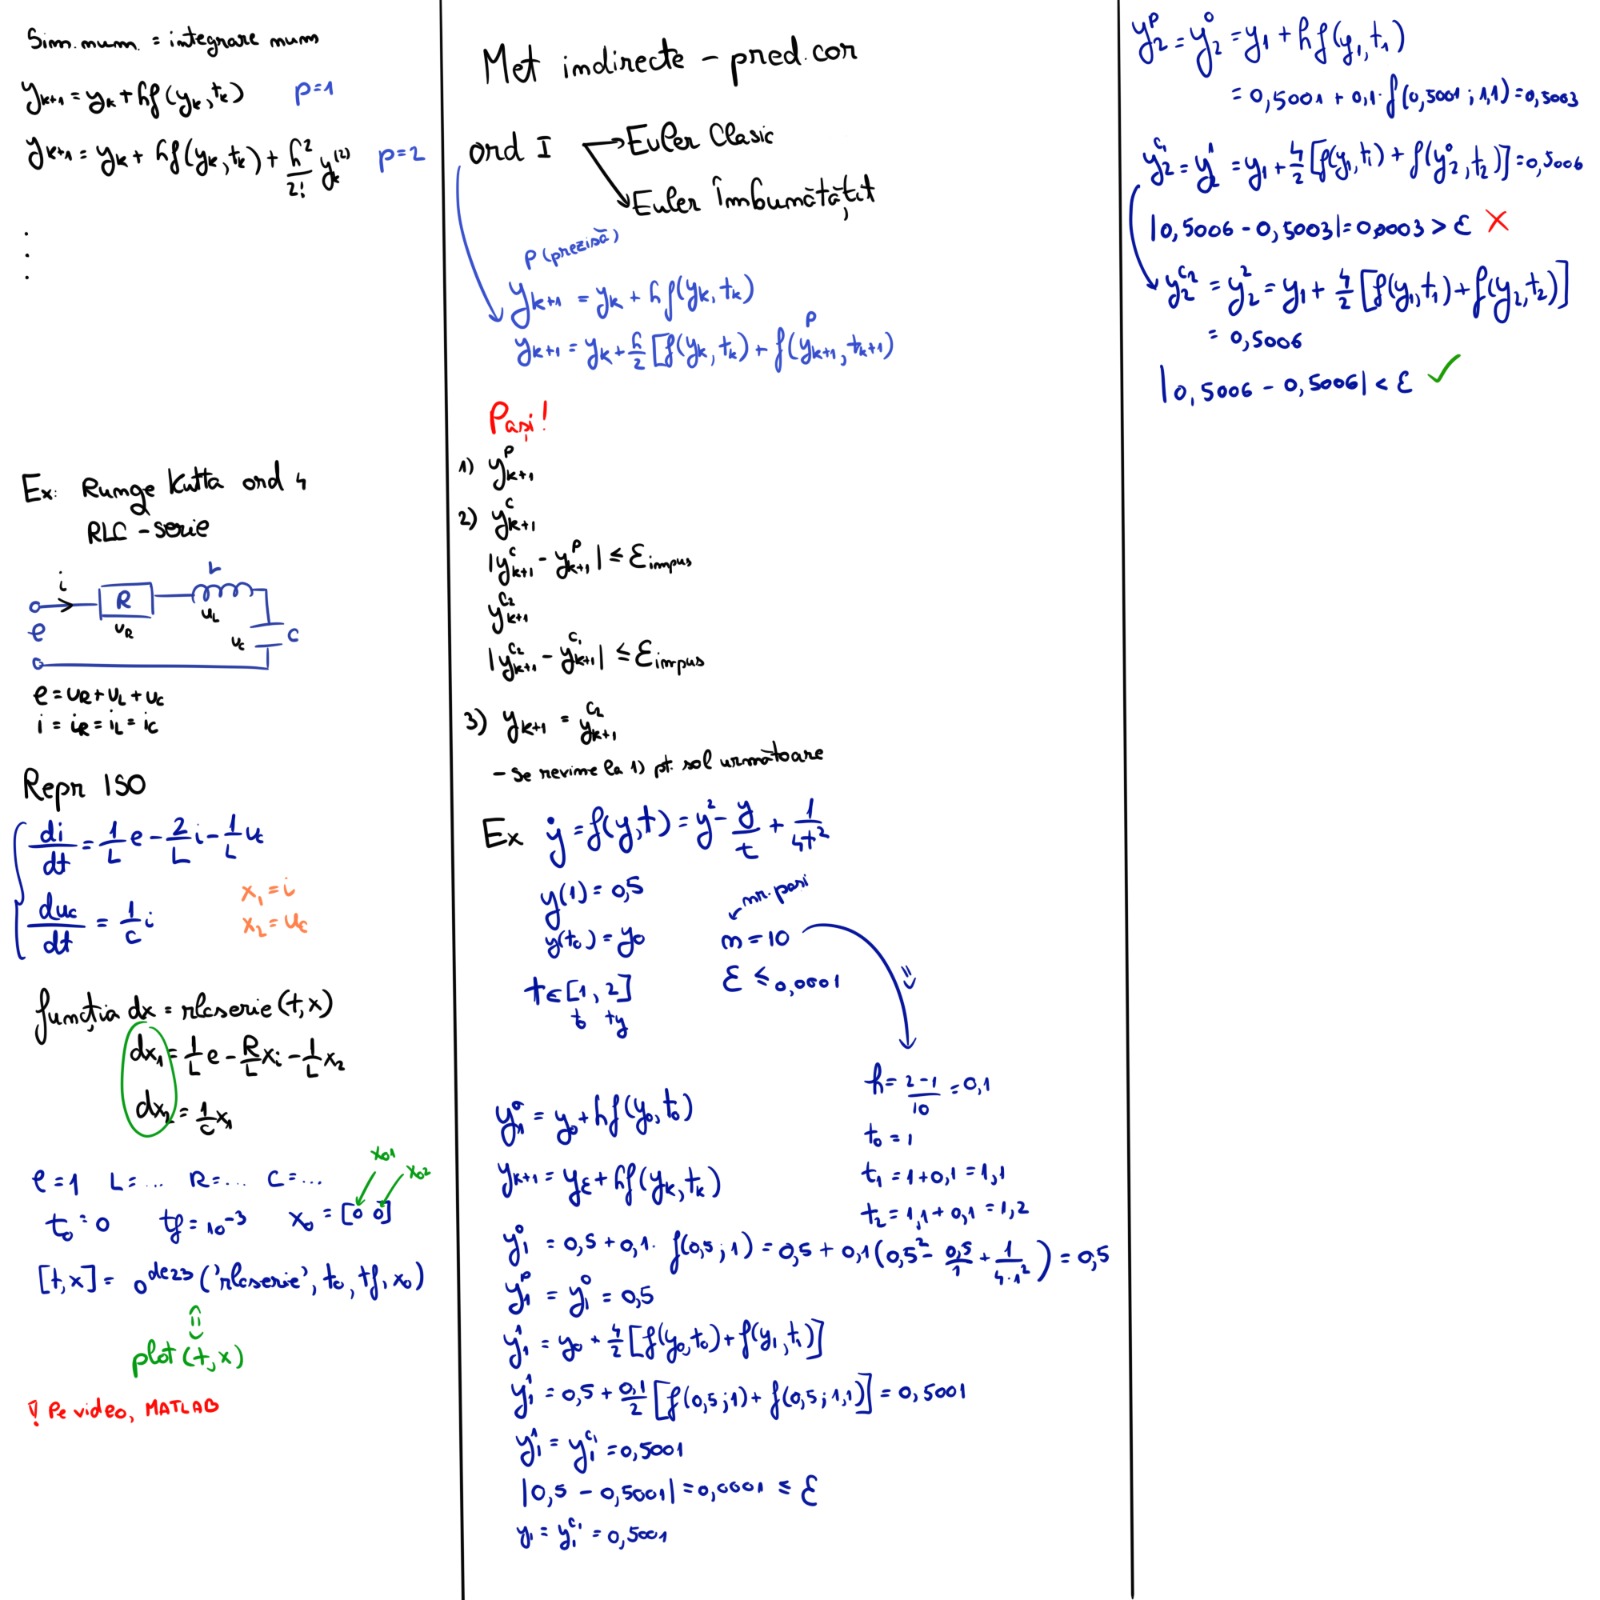 Sim. num. = integrare num
y_{k+1} = y_k + hf(y_k, t_k) p=1
y_{k+1} = y_k + hf(y_k, t_k) + h²/2! y_k^{(2)} p=2
.
.
.
Ex: Runge Kutta ord 4
RLC - serie
i R L
e u_R u_L u_c C
e = u_R + u_L + u_c
i = i_R = i_L = i_c
Repr ISO
di/dt = 1/L e - 2/L i - 1/L u_c
x_1 = i
du_c/dt = 1/C i
x_2 = u_c
funcția dx = rlcserie(t, x)
dx_1 = 1/L e - R/L x_i - 1/L x_2
dx_2 = 1/C x_1
x_{01} x_{02}
e = 1 L = ... R = ... C = ...
t_0 = 0 t_f = 10^{-3} x_0 = [0 0]
[t, x] = ode23('rlcserie', t_0, t_f, x_0)
=
plot(t, x)
! Pe video, MATLAB
Met indirecte - pred. cor
ord I → Euler Clasic
→ Euler Îmbunătățit
p (prezisă)
y_{k+1} = y_k + hf(y_k, t_k)
y_{k+1} = y_k + h/2 [f(y_k, t_k) + f(y^p_{k+1}, t_{k+1})
Pași!
1) y^p_{k+1}
2) y^c_{k+1}
|y^c_{k+1} - y^p_{k+1}| ≤ ε_{impus}
y^{c_2}_{k+1}
|y^{c_2}_{k+1} - y^{c_1}_{k+1}| ≤ ε_{impus}
3) y_{k+1} = y^{c_2}_{k+1}
- Se revine la 1) pt. sol următoare
Ex ẏ = f(y, t) = y² - y/t + 1/4t²
y(1) = 0,5
y(t_0) = y_0
nr. pasi
n = 10
t ∈ [1, 2]
t_0 t_f
ε ≤ 0,0001
=
h = 2-1/10 = 0,1
t_0 = 1
t_1 = 1 + 0,1 = 1,1
t_2 = 1,1 + 0,1 = 1,2
y^0_1 = y_0 + hf(y_0, t_0)
y_{k+1} = y_k + hf(y_k, t_k)
y^0_1 = 0,5 + 0,1 · f(0,5 ; 1) = 0,5 + 0,1(0,5² - 0,5/1 + 1/4·1²) = 0,5
y^p_1 = y^0_1 = 0,5
y^1_1 = y_0 + h/2 [f(y_0, t_0) + f(y_1, t_1)]
y^1_1 = 0,5 + 0,1/2 [f(0,5 ; 1) + f(0,5 ; 1,1)] = 0,5001
y^1_1 = y^{c_1}_1 = 0,5001
|0,5 - 0,5001| = 0,0001 ≤ ε
y_1 = y^{c_1}_1 = 0,5001
y^p_2 = y^0_2 = y_1 + hf(y_1, t_1)
= 0,5001 + 0,1 · f(0,5001 ; 1,1) = 0,5003
y^{c_1}_2 = y^1_2 = y_1 + h/2 [f(y_1, t_1) + f(y^0_2, t_2)] = 0,5006
|0,5006 - 0,5003| = 0,0003 > ε ✗
y^{c_2}_2 = y^2_2 = y_1 + h/2 [f(y_1, t_1) + f(y_2, t_2)]
= 0,5006
|0,5006 - 0,5006| < ε ✓